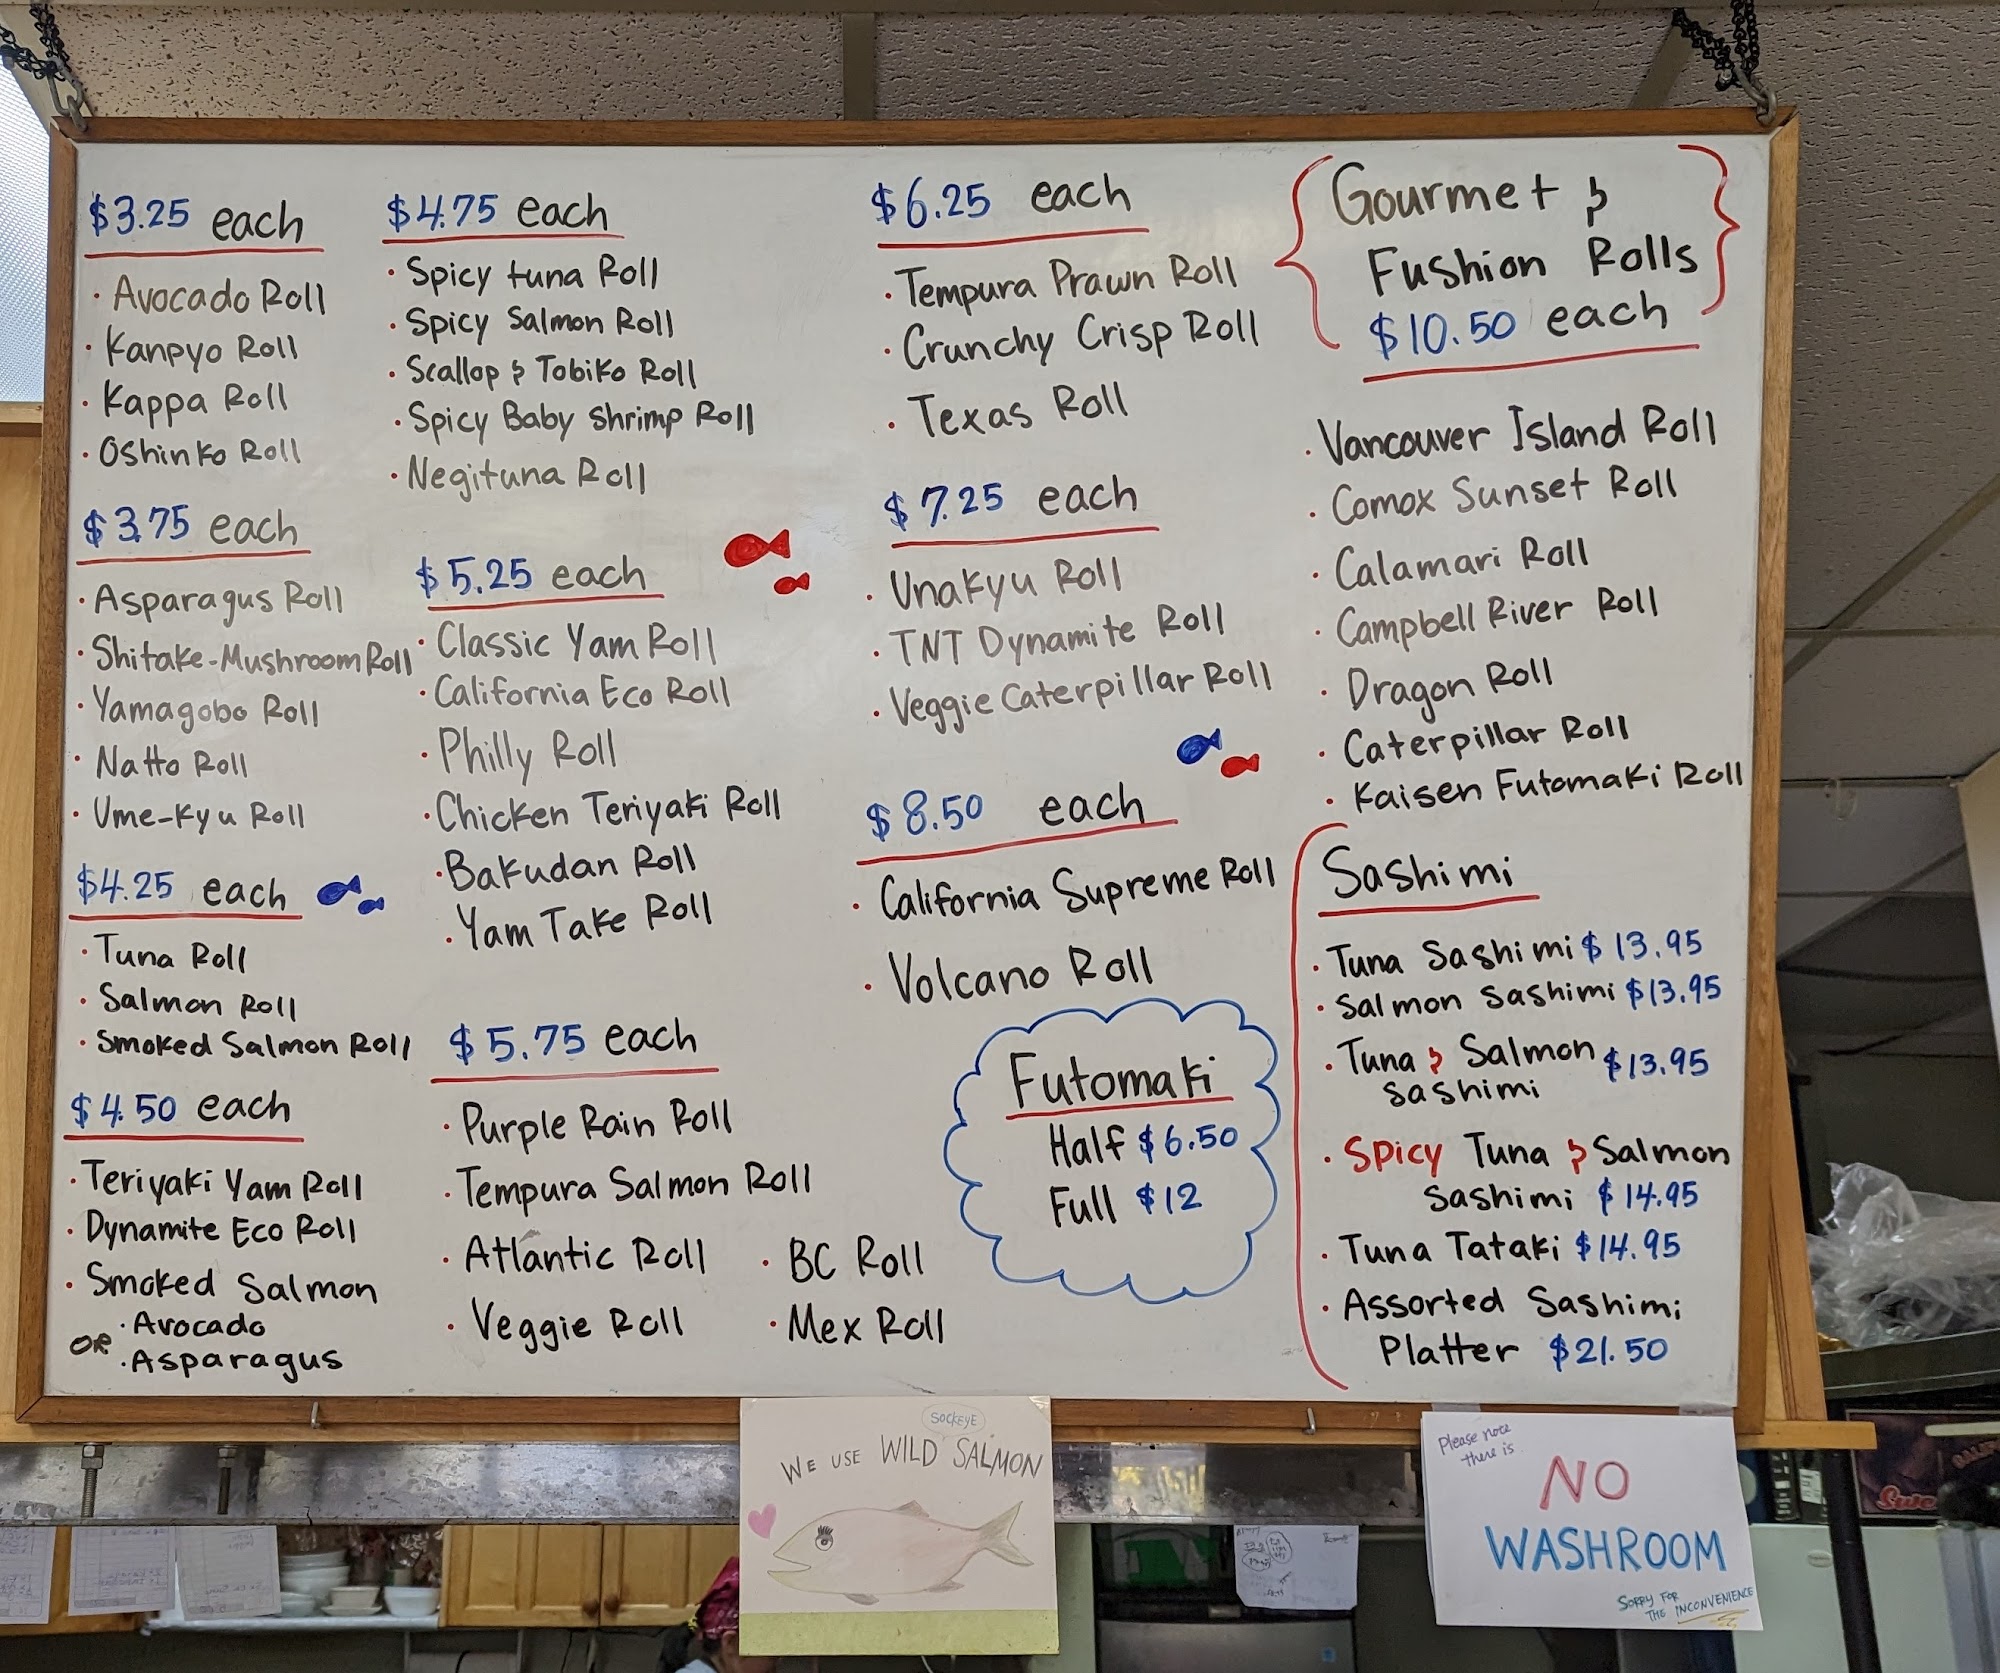 $3.25 each
· Avocado Roll
· Kanpyo Roll
· Kappa Roll
· Oshinko Roll
$3.75 each
· Asparagus Roll
· Shitake-Mushroom Roll
· Yamagobo Roll
· Natto Roll
· Ume-Kyu Roll
$4.25 each
· Tuna Roll
· Salmon Roll
· Smoked Salmon Roll
$4.50 each
· Teriyaki Yam Roll
· Dynamite Eco Roll
· Smoked Salmon
· Avocado
OR
· Asparagus
$4.75 each
· Spicy tuna Roll
· Spicy Salmon Roll
· Scallop & Tobiko Roll
· Spicy Baby Shrimp Roll
· Negituna Roll
$5.25 each
· Classic Yam Roll
· California Eco Roll
· Philly Roll
· Chicken Teriyaki Roll
· Bakudan Roll
· Yam Take Roll
$5.75 each
· Purple Rain Roll
· Tempura Salmon Roll
· Atlantic Roll
· Veggie Roll
· BC Roll
· Mex Roll
$6.25 each
· Tempura Prawn Roll
· Crunchy Crisp Roll
· Texas Roll
$7.25 each
· Unakyu Roll
· TNT Dynamite Roll
· Veggie Caterpillar Roll
$8.50 each
· California Supreme Roll
· Volcano Roll
Futomaki
Half $6.50
Full $12
Gourmet &
Fushion Rolls
$10.50 each
· Vancouver Island Roll
· Comox Sunset Roll
· Calamari Roll
· Campbell River Roll
· Dragon Roll
· Caterpillar Roll
· Kaisen Futomaki Roll
Sashimi
· Tuna Sashimi $13.95
· Salmon Sashimi $13.95
· Tuna & Salmon $13.95
Sashimi
· Spicy Tuna & Salmon
Sashimi $14.95
· Tuna Tataki $14.95
· Assorted Sashimi
Platter $21.50
SOCKEYE
WE USE WILD SALMON
Please note
there is
NO
WASHROOM
SORRY FOR
THE INCONVENIENCE